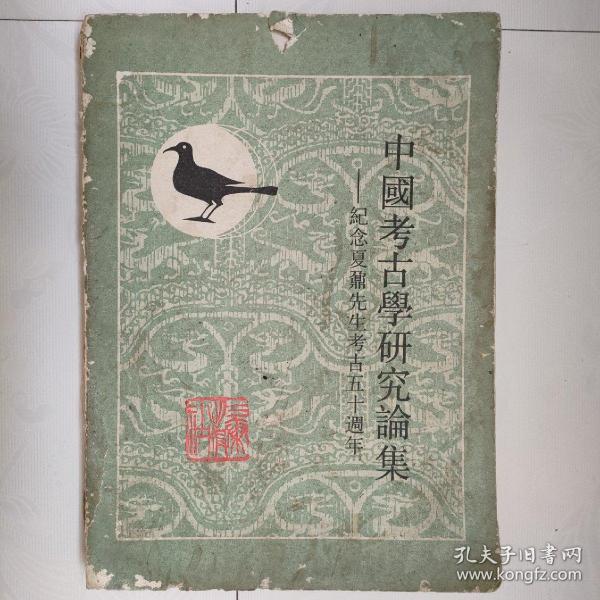 中國考古學研究論集
——紀念夏鼐先生考古五十週年
孔夫子旧书网
www.kongfz.com